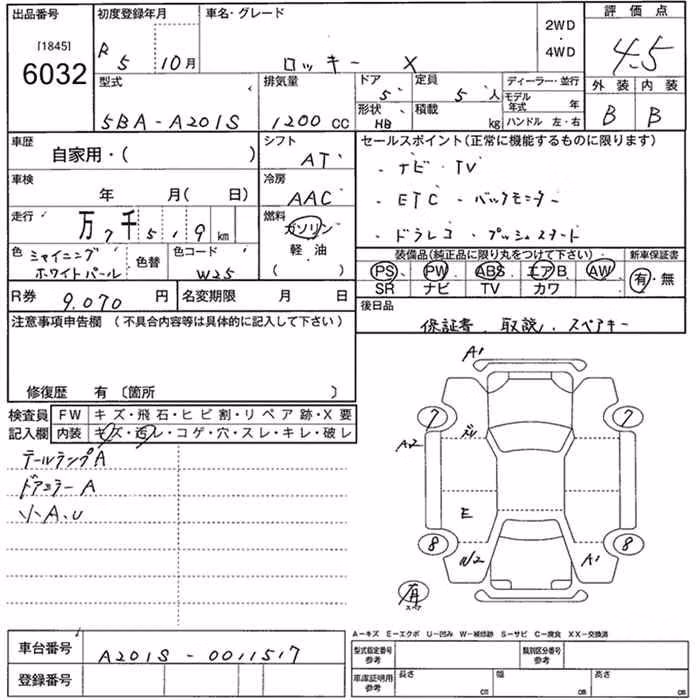 出品番号
[1845]
6032
初度登録年月
R 5 10月
車名・グレード
ロッキー X
2WD
・
4WD
評価点
4.5
外装 内装
B B
型式
5BA-A201S
排気量
1200 CC
ドア
5
定員
5人
形状
HB
積載
kg
ディーラー・並行
モデル年式 年
ハンドル 左・右
車歴
自家用・( )
シフト
AT
セールスポイント(正常に機能するものに限ります)
・ナビ・TV
・ETC・バックモニター
・ドラレコ・プッシュスタート
車検
年 月( 日)
冷房
AAC
走行
万 7千 5 1 9 km
燃料
ガソリン
軽・油
( )
色
シャイニング
ホワイトパール
色替
色コード
W25
装備品(純正品に限り丸をつけて下さい)
PS PW ABS エアB AW
SR ナビ TV カワ
新車保証書
有・無
R券 9.070 円
名変期限 月 日
後日品
保証書、取説、スペアキー
注意事項申告欄 (不具合内容等は具体的に記入して下さい)
修復歴 有 〔箇所 〕
検査員
記入欄
FW キズ・飛石・ヒビ割・リペア跡・X要
内装 キズ・汚レ・コゲ・穴・スレ・キレ・破レ
テールランプA
ドアミラーA
小A、U
A1
7 7
A2
E
8 8
W2 A1
有
スペア
A-キズ E-エクボ U-凹み W-補修跡 S-サビ C-腐食 XX-交換済
車台番号
A201S-0011517
登録番号
型式指定番号
参考
類別区分番号
参考
車庫証明用
参考
長さ cm
幅 cm
高さ cm